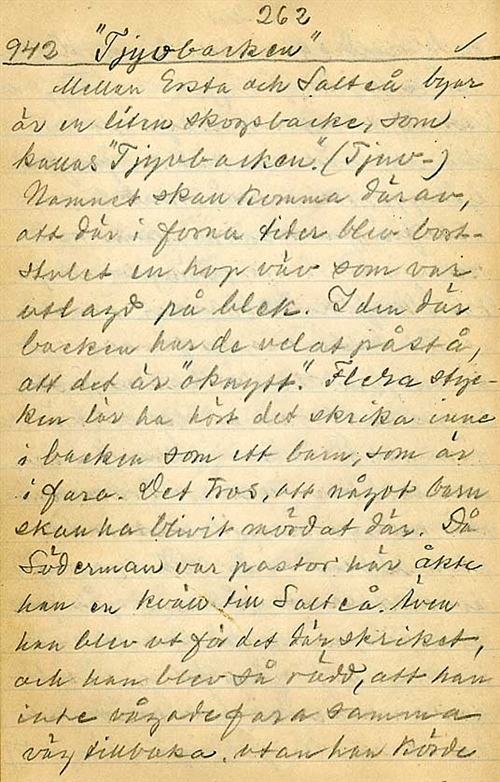 262
942 "Tjyvbacken" ✓
Mellan Ersta och Salteå byar
är en liten skogsbacke, som
kallas "Tjyvbacken". (Tjuv-)
Namnet skall komma därav,
att där i forna tider blev bort-
stulet en hop väv som var
utlagd på blek. I den där
backen har de velat påstå,
att det är "oknytt". Flera styc-
ken lär ha hört det skrika inne
i backen som ett barn, som är
i fara. Det tros, att något barn
skall ha blivit mördat där. Då
Söderman var pastor här åkte
han en kväll till Salteå. Även
han blev ut för det där skriket,
och han blev så rädd, att han
inte vågade fara samma
väg tillbaka, utan han körde